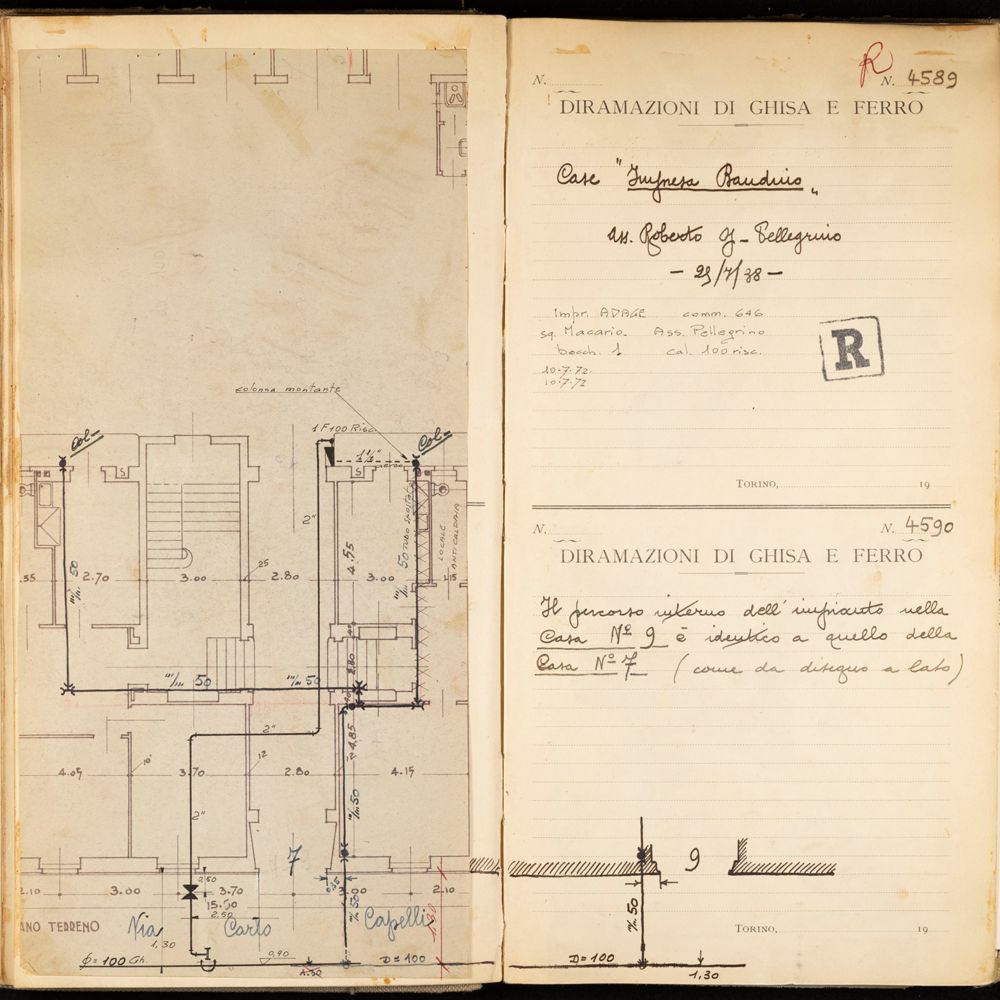 colonna montante
Col-
1F100 Risc.
Col-
1½"
S
S
2"
TUBO
LOCALE
ANTICALDAIA
4.55
m/m 50
m/m 50
.55
2.70
3.00
25
2.80
3.00
1.15
m/m 50
m/m 50
2.80
2"
4.85
4.05
10
3.70
12
2.80
4.15
2"
m/m 50
7
2.10
3.00
2.50
3.70
3.00
2.10
15.50
2.50
ANO TERRENO
Via Carlo Capelli
1,30
Φ=100 Gh.
0,90
1.30
D=100
N.
R
N. 4589
DIRAMAZIONI DI GHISA E FERRO
Case "Impresa Bauduis"
Ass. Roberto G- Pellegrino
- 25/7/38 -
Impr. ADAGE comm. 646
sq. Macario. Ass. Pellegrino
bocch. 1 cal. 100 risc.
10.7.72.
10.7.72
R
TORINO, 19
N.
N. 4590
DIRAMAZIONI DI GHISA E FERRO
Il percorso interno dell'impianto nella
Casa Nº 9 è identico a quello della
Casa Nº 7 (come da disegno a lato)
9
50
TORINO, 19
D=100
1,30